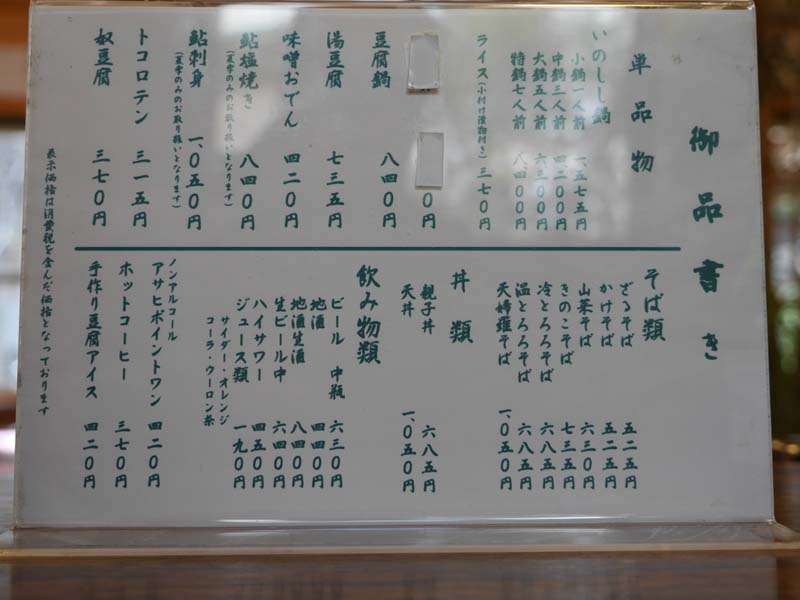 御品書き
単品物
いのしし鍋
小鍋一人前 一、五七五円
中鍋三人前 四二〇〇円
大鍋五人前 六三〇〇円
特鍋七人前 八四〇〇円
ライス(小付け漬物付き) 三七〇円
〇円
豆腐鍋 八四〇円
湯豆腐 七三五円
味噌おでん 四二〇円
鮎塩焼き 八四〇円
(夏季のみのお取り扱いとなります)
鮎刺身 一、〇五〇円
(夏季のみのお取り扱いとなります)
トコロテン 三一五円
奴豆腐 三七〇円
そば類
ざるそば 五二五円
かけそば 五二五円
山菜そば 六三〇円
きのこそば 七三五円
冷とろろそば 六八五円
温とろろそば 六八五円
天婦羅そば 一、〇五〇円
丼類
親子丼 六八五円
天丼 一、〇五〇円
飲み物類
ビール 中瓶 六三〇円
地酒 四四〇円
地酒生酒 八四〇円
生ビール中 六四〇円
ハイサワー 四五〇円
ジュース類 一九〇円
サイダー・オレンジ
コーラ・ウーロン茶
ノンアルコール
アサヒポイントワン 四二〇円
ホットコーヒー 三七〇円
手作り豆腐アイス 四二〇円
表示価格は消費税を含んだ価格となっております